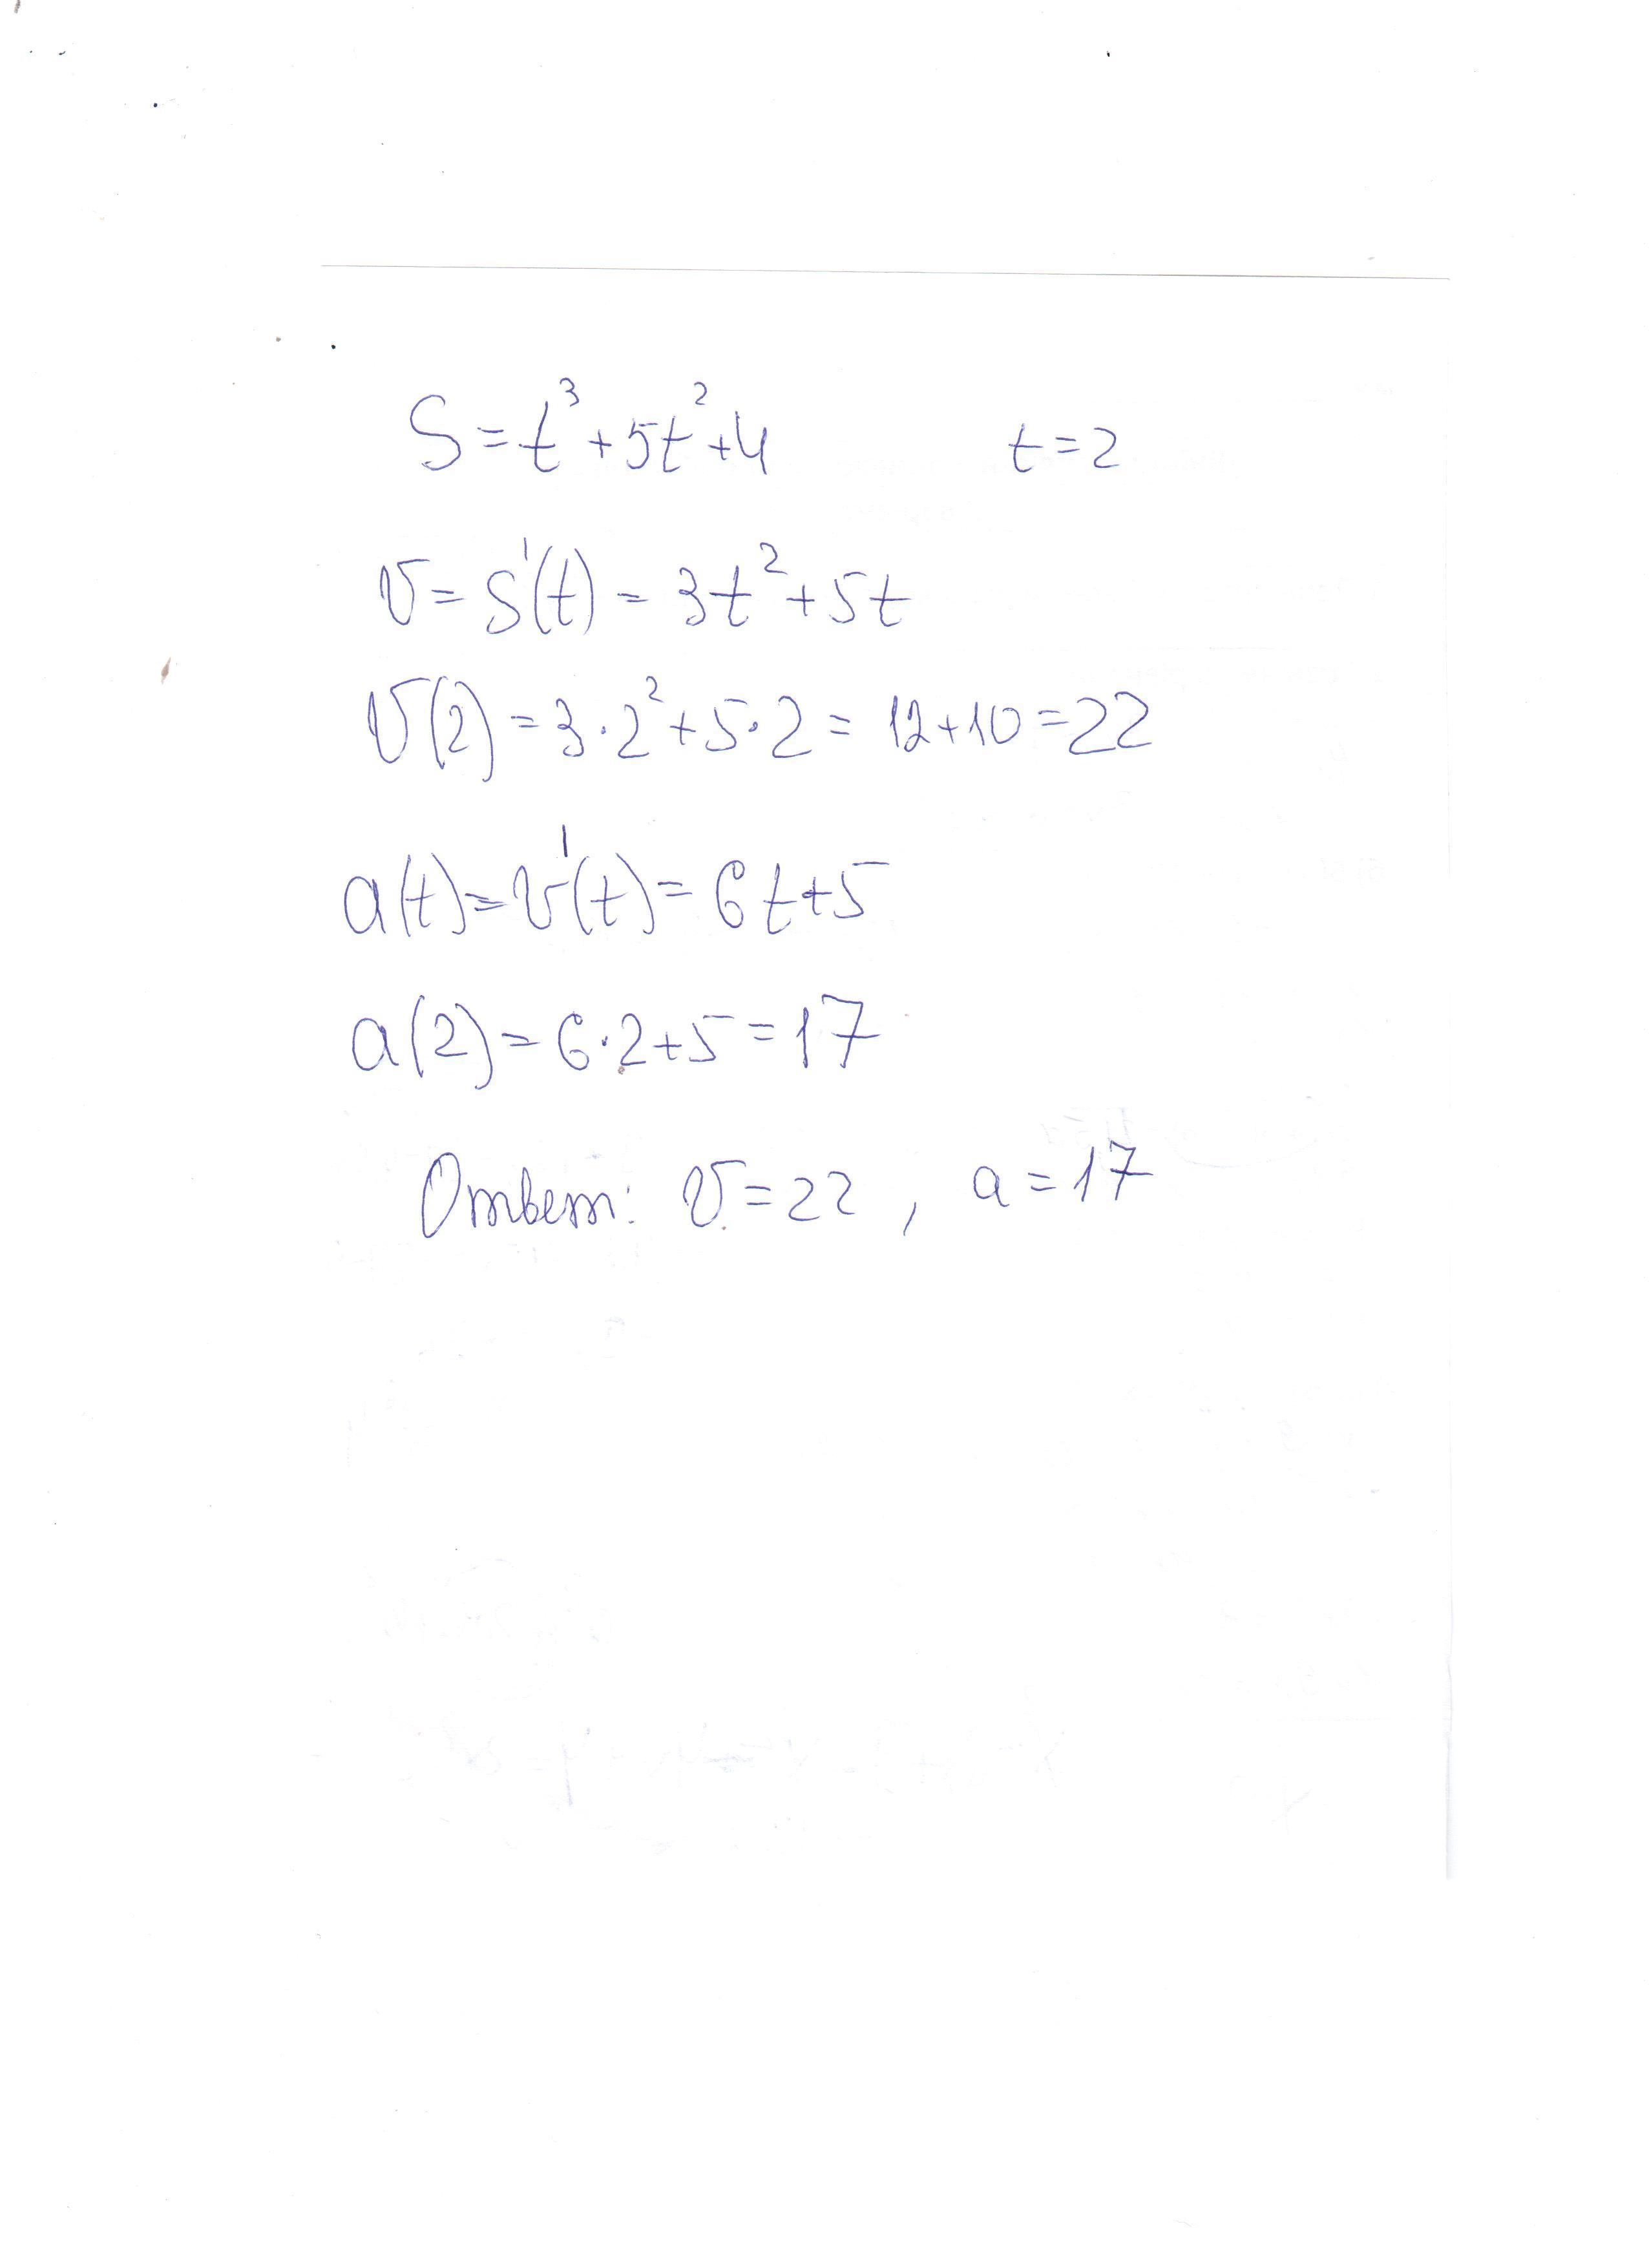 S = t³ + 5t² + 4 t = 2
v = s'(t) = 3t² + 5t
v(2) = 3·2² + 5·2 = 12 + 10 = 22
a(t) = v'(t) = 6t + 5
a(2) = 6·2 + 5 = 17
Ответ: v = 22 , a = 17